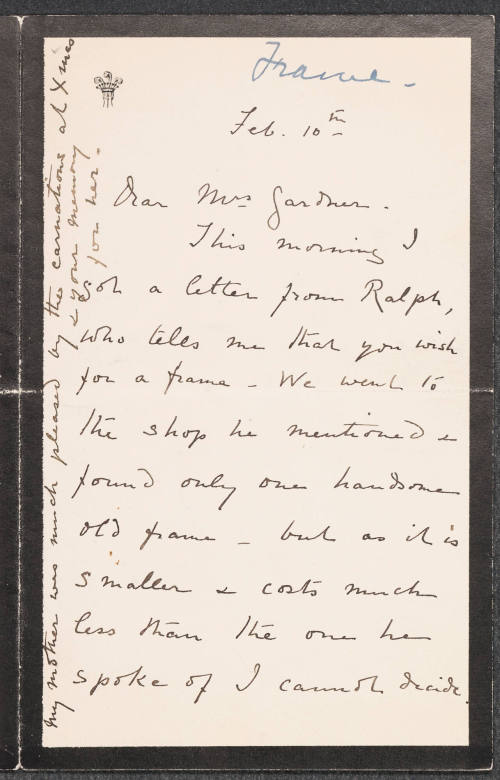 Frame.
Feb. 10th
Dear Mrs Gardner.
This morning I
got a letter from Ralph,
who tells me that you wish
for a frame - We went to
the shop he mentioned &
found only one handsome
old frame - but as it is
smaller & costs much
less than the one he
spoke of I cannot decide.
My mother was much pleased by the carnations at Xmas
& your memory
for her.